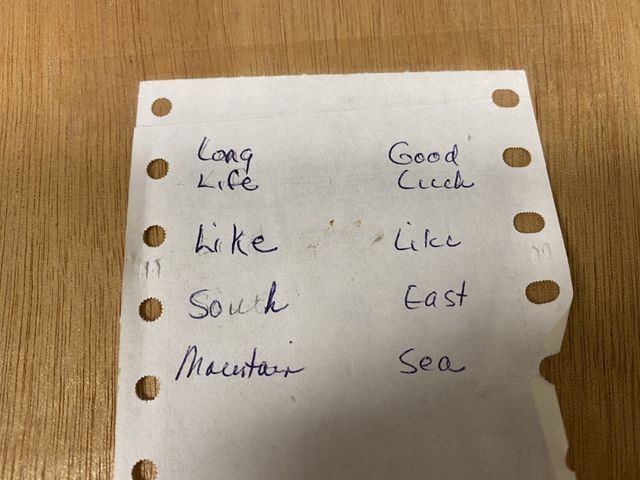 Long Good
Life Luck
Like Like
South East
Mountain Sea